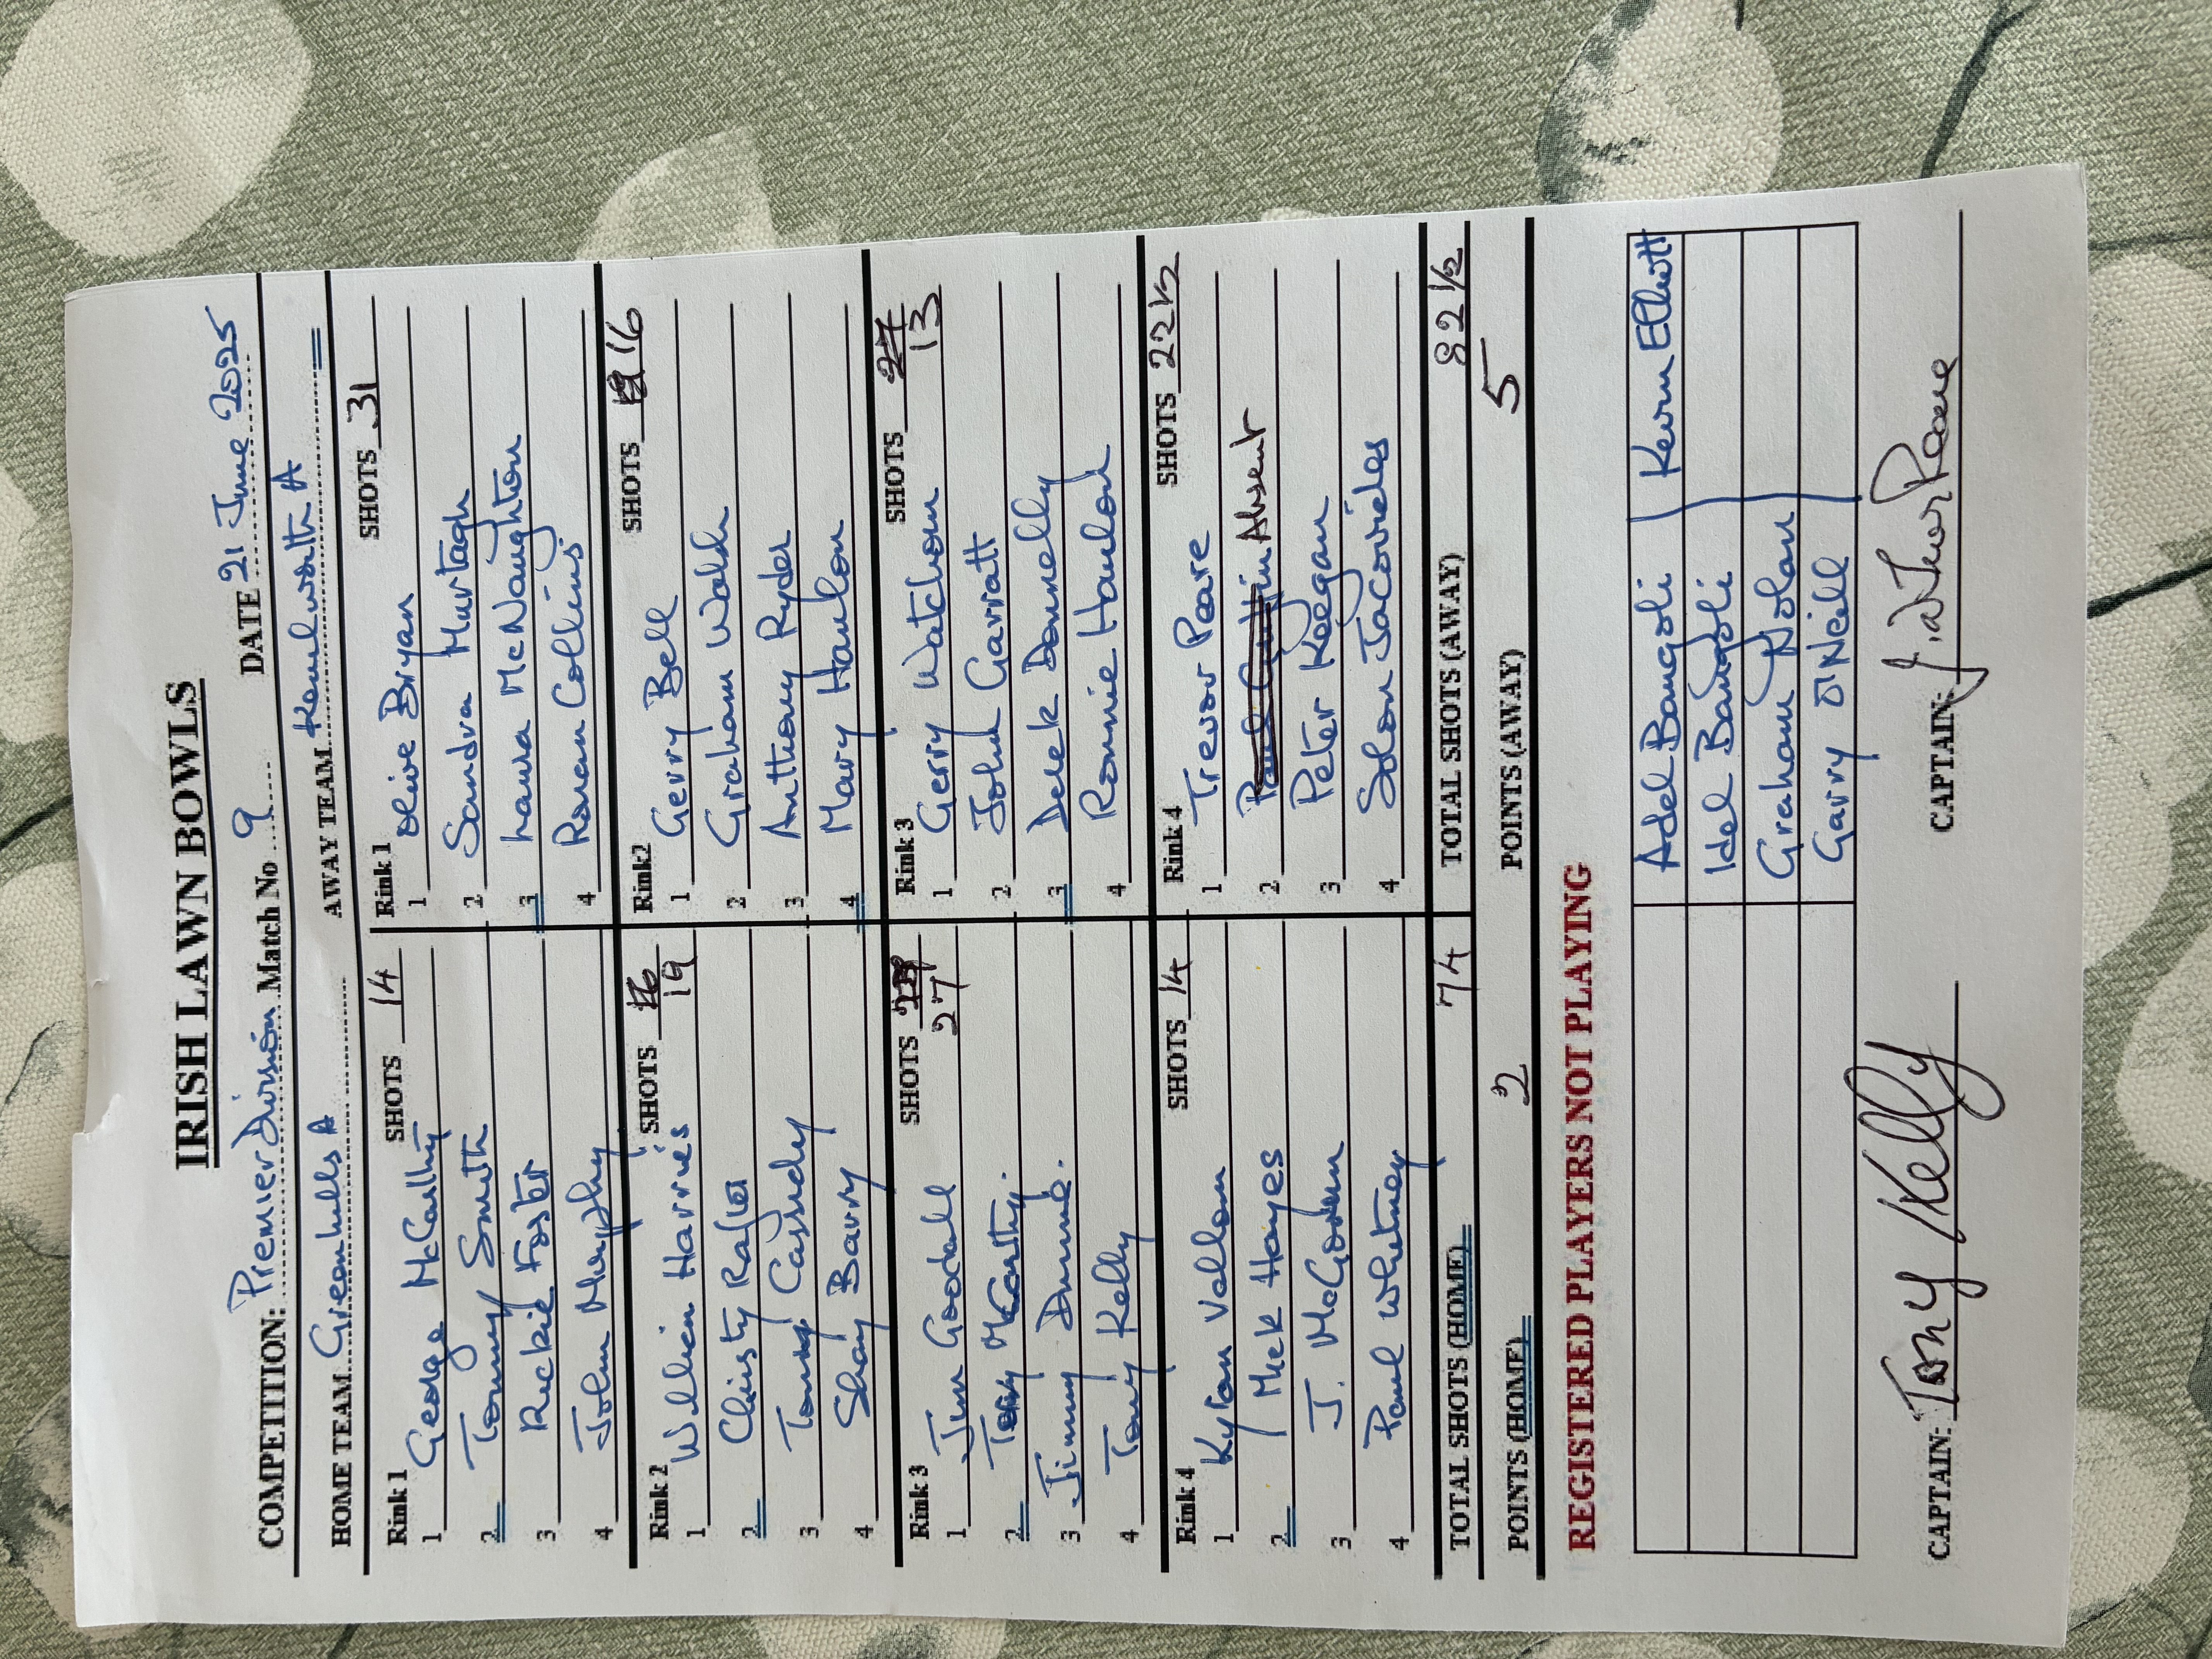 IRISH LAWN BOWLS
COMPETITION: Premier Division Match No 9 DATE 21 June 2025
HOME TEAM Greenhills A AWAY TEAM Kenilworth A
Rink 1 SHOTS 14
1 George McCarthy
2 Tommy Smith
3 Rickie Foster
4 John Murphy
Rink 1 SHOTS 31
1 Olive Bryan
2 Sandra Murtagh
3 Laura McNaughton
4 Ronan Collins
Rink 2 SHOTS 16 19
1 William Harris
2 Christy Rafter
3 Tommy Cassidy
4 Shay Barry
Rink2 SHOTS 19 16
1 Gerry Bell
2 Graham Walsh
3 Anthony Ryder
4 Mary Hanlon
Rink 3 SHOTS 27
1 Jim Goodall
2 Terry McCarthy.
3 Jimmy Dunne.
4 Tony Kelly
Rink 3 SHOTS 27 13
1 Gerry Watchorn
2 John Garratt
3 Derek Donnelly
4 Ronnie Hanlon
Rink 4 SHOTS 14
1 Kyran Vallom
2 Mick Hayes
3 J. McGovern
4 Paul Whitney
Rink 4 SHOTS 22 1/2
1 Trevor Peare
2 Paul Absent
3 Peter Keegan
4 Solon Jacovides
TOTAL SHOTS (HOME) 74 TOTAL SHOTS (AWAY) 82 1/2
POINTS (HOME) 2 POINTS (AWAY) 5
REGISTERED PLAYERS NOT PLAYING
Adel Bangoli Kevin Elliott
Idel Bangoli
Graham Nolan
Garry O'Neill
CAPTAIN: Tony Kelly CAPTAIN: J. Trevor Peare